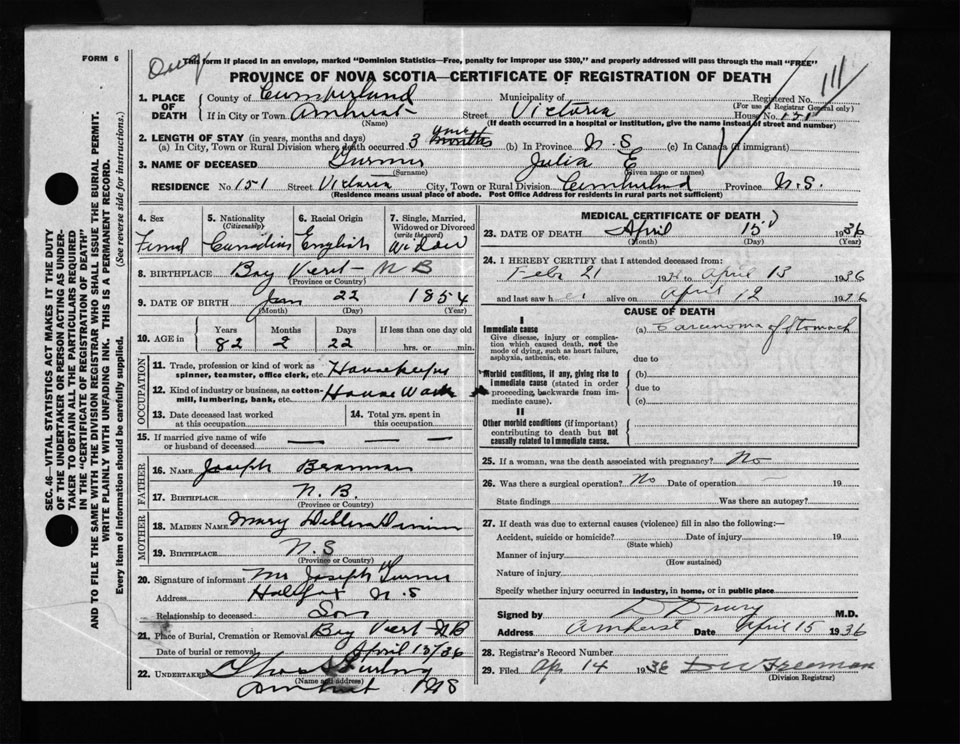 FORM 6
This form if placed in an envelope, marked "Dominion Statistics—Free, penalty for improper use $300," and properly addressed will pass through the mail "FREE"
PROVINCE OF NOVA SCOTIA—CERTIFICATE OF REGISTRATION OF DEATH
111
SEC. 46—VITAL STATISTICS ACT MAKES IT THE DUTY
OF THE UNDERTAKER OR PERSON ACTING AS UNDER-
TAKER TO OBTAIN ALL THE PARTICULARS REQUIRED
IN THE "CERTIFICATE OF REGISTRATION OF DEATH"
AND TO FILE THE SAME WITH THE DIVISION REGISTRAR WHO SHALL ISSUE THE BURIAL PERMIT.
WRITE PLAINLY WITH UNFADING INK. THIS IS A PERMANENT RECORD.
Every item of information should be carefully supplied. (See reverse side for instructions.)
1. PLACE OF DEATH
County of Cumberland Municipality of Registered No.
(For use of Registrar General only)
If in City or Town Amherst Street Victoria House No. 151
(Name) (If death occurred in a hospital or institution, give the name instead of street and number)
2. LENGTH OF STAY (in years, months and days)
(a) In City, Town or Rural Division where death occurred 3 months (b) In Province N.S (c) In Canada (if immigrant)
3. NAME OF DECEASED Julia E
(Surname) (Given name or names)
RESIDENCE No. 151 Street Victoria City, Town or Rural Division Cumberland Province N.S.
(Residence means usual place of abode. Post Office Address for residents in rural parts not sufficient)
4. Sex
5. Nationality (Citizenship)
6. Racial Origin
7. Single, Married, Widowed or Divorced (write the word)
Femal Canadian English Widow
8. BIRTHPLACE Bay Vert - N B
(Province or Country)
9. DATE OF BIRTH Jan 22 1854
(Month) (Day) (Year)
10. AGE in
Years Months Days If less than one day old
82 2 22 hrs. or min.
OCCUPATION
11. Trade, profession or kind of work as spinner, teamster, office clerk, etc. Housekeeper
12. Kind of industry or business, as cotton-mill, lumbering, bank, etc. House Work
13. Date deceased last worked at this occupation
14. Total yrs. spent in this occupation
15. If married give name of wife or husband of deceased — — —
FATHER
16. NAME Joseph
17. BIRTHPLACE N.B.
(Province or Country)
MOTHER
18. MAIDEN NAME Mary
19. BIRTHPLACE N.S
(Province or Country)
20. Signature of informant Mr Joseph
Address Halifax N.S
Relationship to deceased Son
21. Place of Burial, Cremation or Removal Bay Vert - N B
Date of burial or removal April 15/36
22. UNDERTAKER
(Name and address)
Amherst N S
MEDICAL CERTIFICATE OF DEATH
23. DATE OF DEATH April 15 1936
(Month) (Day) (Year)
24. I HEREBY CERTIFY that I attended deceased from:
Feb 21 19 to April 13 1936
and last saw her alive on April 12 1936
CAUSE OF DEATH
I
Immediate cause
Give disease, injury or complication which caused death, not the mode of dying, such as heart failure, asphyxia, asthenia, etc.
(a) Carcinoma of Stomach
due to
Morbid conditions, if any, giving rise to immediate cause (stated in order proceeding backwards from immediate cause).
(b)
due to
(c)
II
Other morbid conditions (if important) contributing to death but not causally related to immediate cause.
25. If a woman, was the death associated with pregnancy? No
26. Was there a surgical operation? No Date of operation — 19
State findings Was there an autopsy?
27. If death was due to external causes (violence) fill in also the following:—
Accident, suicide or homicide? Date of injury 19
(State which)
Manner of injury
(How sustained)
Nature of injury
Specify whether injury occurred in industry, in home, or in public place
Signed by D Drury M.D.
Address Amherst Date April 15 1936
28. Registrar's Record Number
29. Filed Apr 14 1936 Freeman
(Division Registrar)